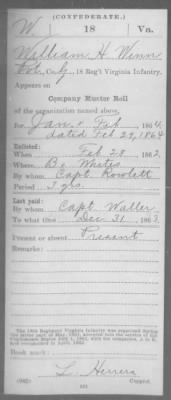 (CONFEDERATE.)
W 18 Va.
William H. Winn
Co. 18 Reg't Virginia Infantry.
Appears on
Company Muster Roll
of the organization named above,
for Jan & Feb 1864,
dated Feb 29, 1864
Enlisted:
When Feb 28 1862,
Where
By whom Capt. Rowlett
Period 3 yrs.
Last paid:
By whom Capt. Waller
To what time Dec 31 1863.
Present or absent Present
Remarks:
The 18th Regiment Virginia Infantry was organized during
Book mark:
L. Herrera
(642) Copyist.